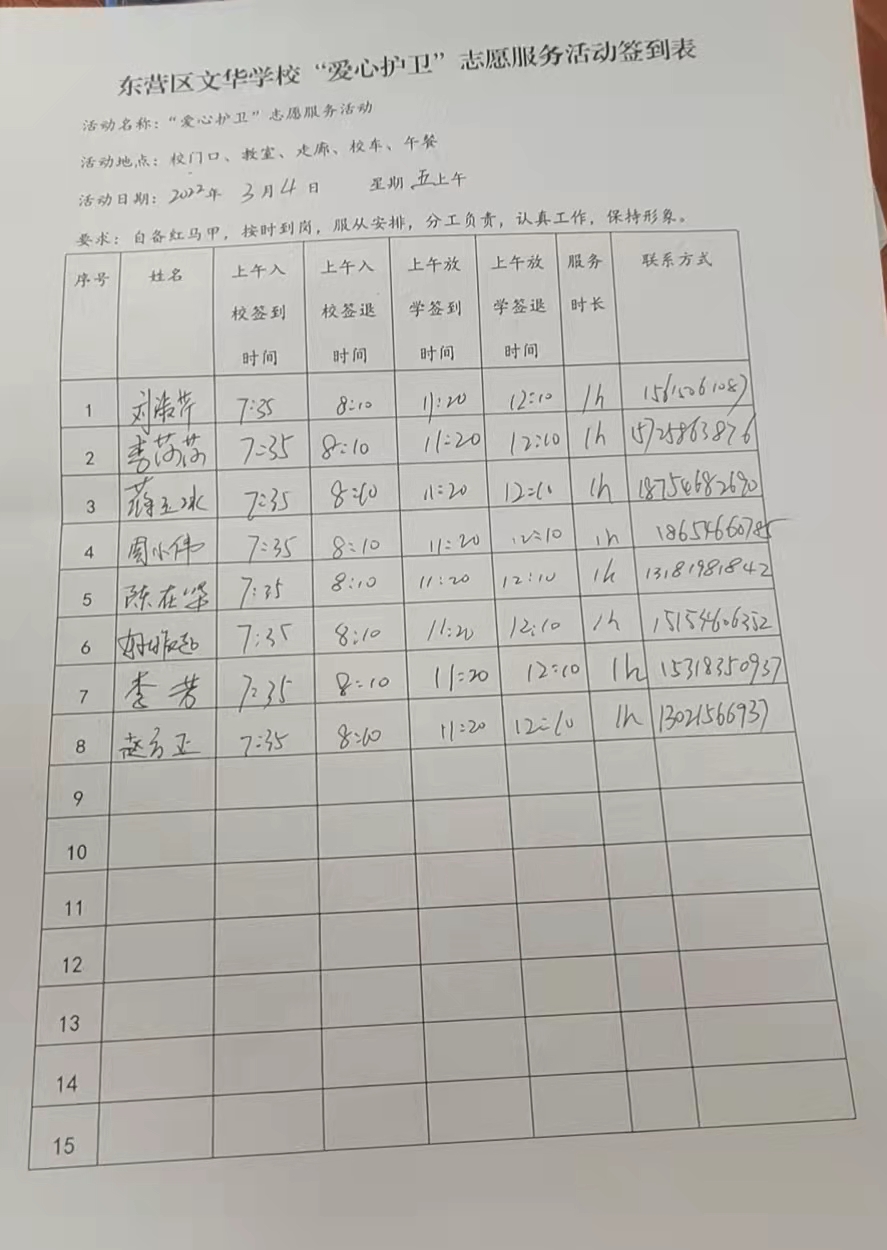 东营区文华学校“爱心护卫”志愿服务活动签到表
活动名称：“爱心护卫”志愿服务活动
活动地点：校门口、教室、走廊、校车、午餐
活动日期：2022年 3月4日 星期五上午
要求：自备红马甲，按时到岗，服从安排，分工负责，认真工作，保持形象。
序号 姓名 上午入校签到时间 上午入校签退时间 上午放学签到时间 上午放学签退时间 服务时长 联系方式
1 7:35 8:10 11:20 12:10 1h 15615061087
2 李莎莎 7:35 8:10 11:20 12:10 1h 15725863876
3 薛玉冰 7:35 8:10 11:20 12:10 1h 18754682690
4 周小伟 7:35 8:10 11:20 12:10 1h 18654660785
5 陈在荣 7:35 8:10 11:20 12:10 1h 13181981842
6 7:35 8:10 11:20 12:10 1h 15154606352
7 李芳 7:35 8:10 11:20 12:10 1h 15318350937
8 赵方正 7:35 8:10 11:20 12:10 1h 13021566937
9
10
11
12
13
14
15